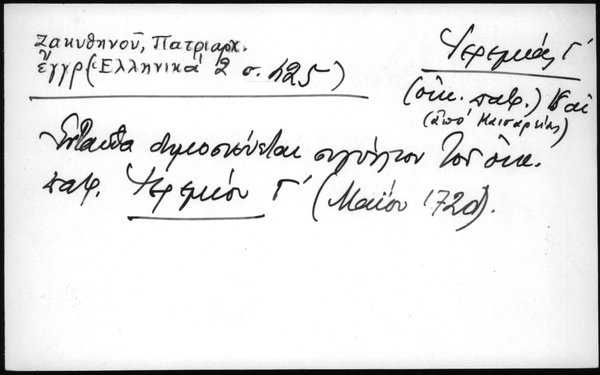 Ζακυθηνοῦ, Πατριαρχ.
ἔγγρ (Ἑλληνικά 2 σ. 125)
Ἱερεμίας Γ΄
(οἰκ. πατρ.) καὶ
(ἀπὸ Καισαρείας)
Ἐνταῦθα δημοσιεύεται σιγίλλιον τοῦ οἰκ.
πατρ. Ἱερεμίου Γ΄ (Μαΐου 1720).